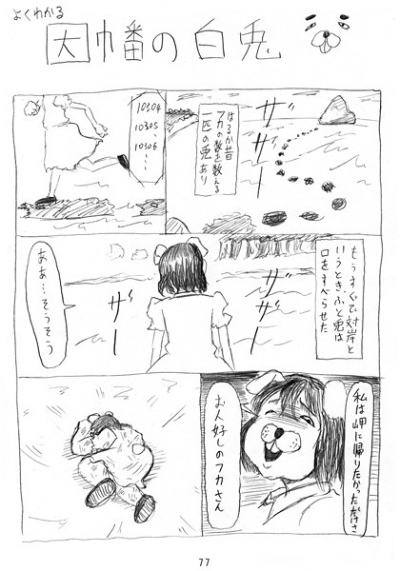 よくわかる
因幡の白兎
はるか昔
フカの数を数える
一匹の兎あり
ザーザー
10304
10305
10306
:
もうすぐで対岸と
いうとき、ふと兎は
口をすべらせた
ザー
ザー
ああ…そうそう
私は岬に帰りたかっただけさ
お人好しのフカさん
77